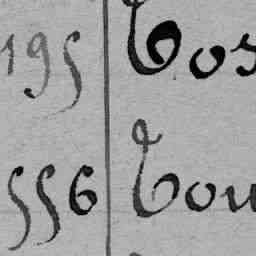 195 Tos
556 Tou